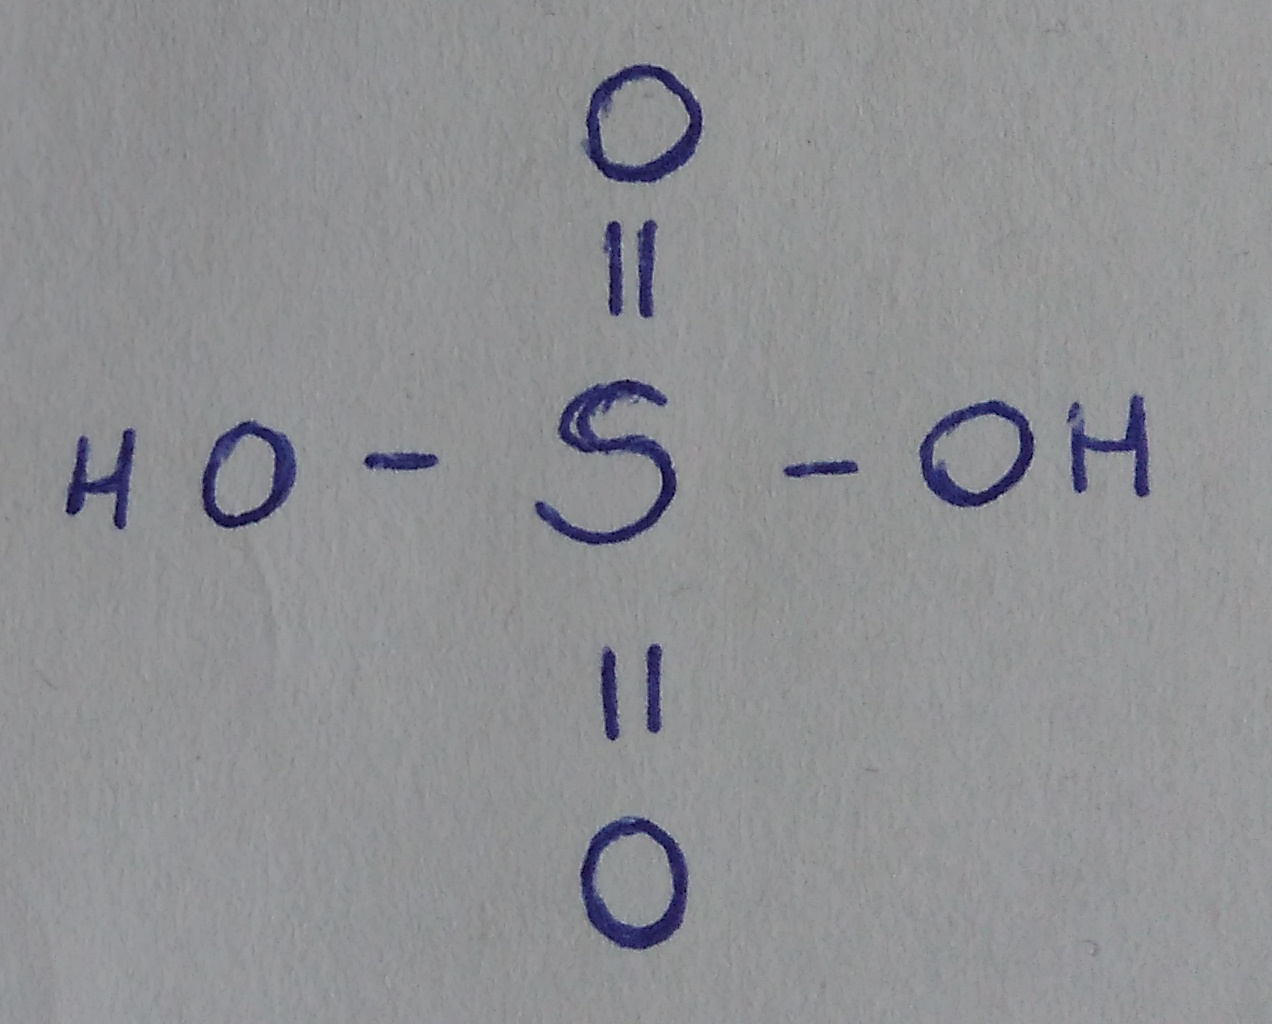 O
||
HO - S - OH
||
O